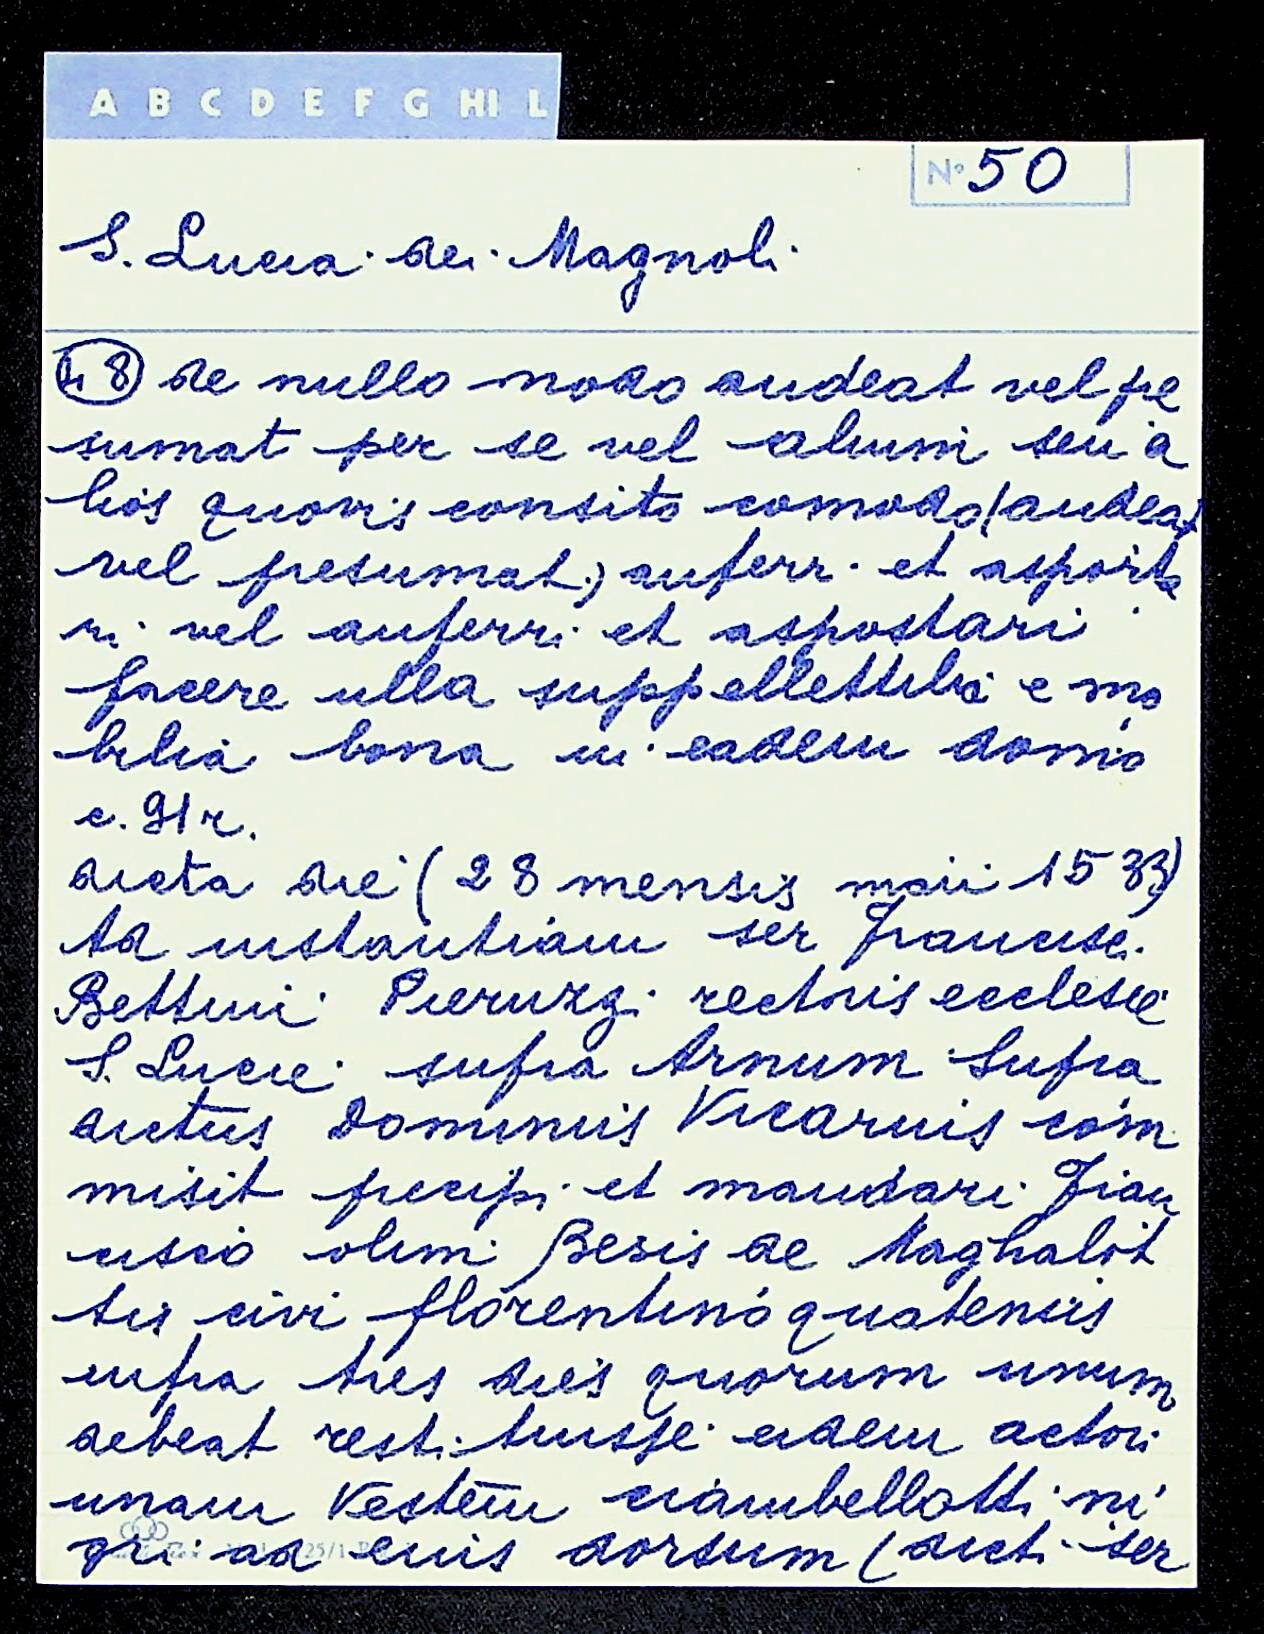 A B C D E F G HI L
N° 50
S. Lucia dei Magnoli
48 de nullo modo audeat vel pre
sumat per se vel alium seu a
lios quovis consito comodo (audeat
vel presumat) auferri et asporta
ri vel auferri et aspostari
facere ulla suppellettilia e mo
bilia bona in eadem domo
c. 91r.
dicta die (28 mensis maii 1533)
Ad instantiam ser Francisci
Bettini Pieruzzi rectoris ecclesie
S. Lucie supra Arnum Supra
dictus Dominus Vicarius com
misit precipi et mandari Fran
cisco olim Besis de Maghalot
tis civi florentino quatenus
infra tres dies quorum unum
debeat restituisse eidem actori
unam Vestem ciambellotti ni
gri ad eius dorsum (dicti ser